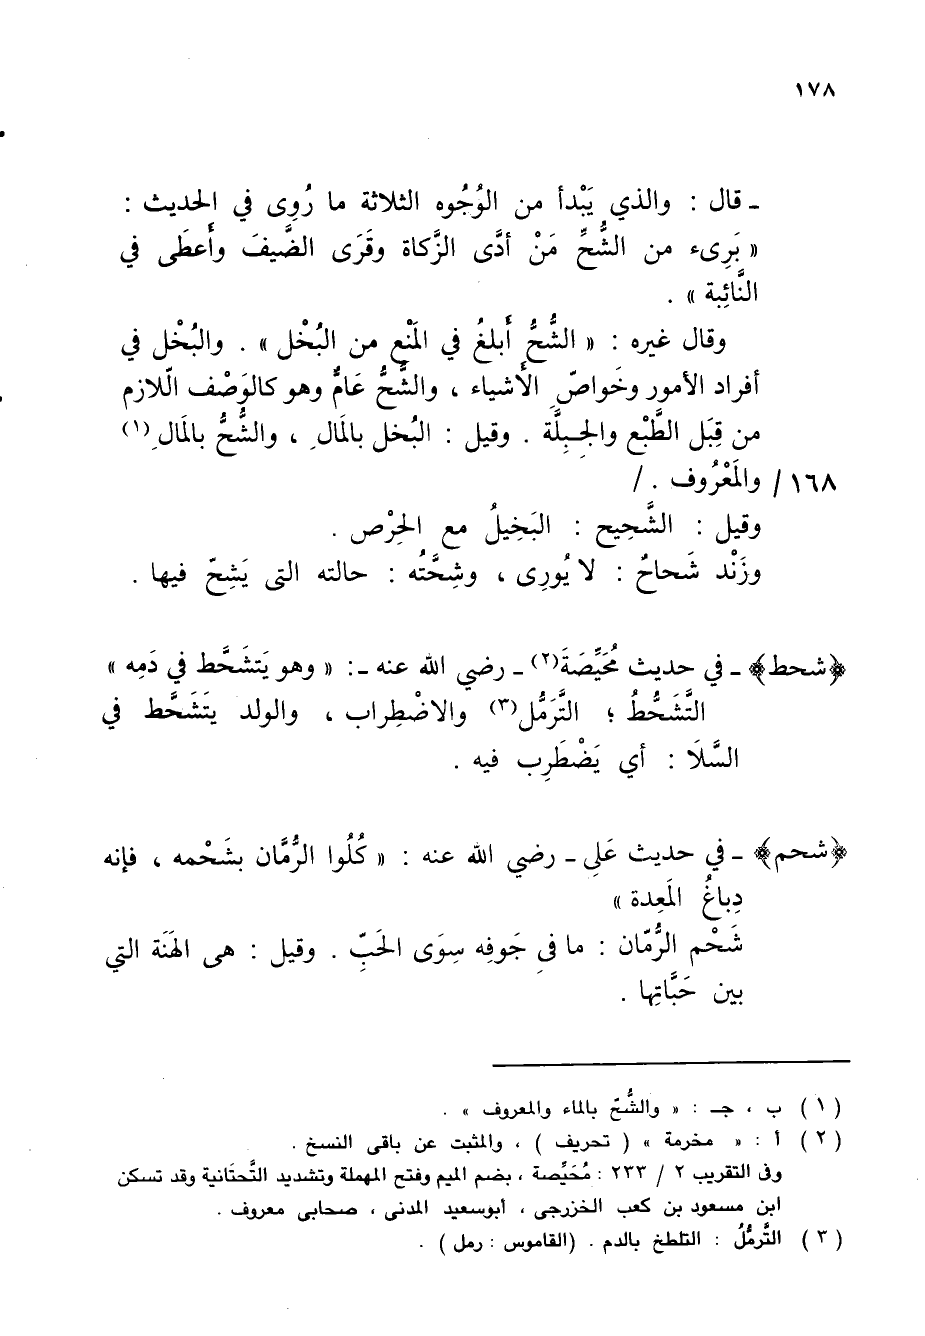 ١٧٨
ـ قال : والذي يَبْدأ من الوُجُوه الثلاثة ما رُوِى في الحديث :
« بَرِىء من الشُّحِّ مَنْ أدَّى الزَّكاة وقَرَى الضَّيفَ وأَعطَى في
النَّائِبة » .
وقال غيره : « الشُّحُّ أَبلغُ في المَنْع من البُخْل » . والبُخْل في
أفراد الأمور وخَواصّ الأَشياء ، والشُّحُّ عَامٌّ وهو كالوَصْف الّلازم
من قِبَل الطَّبْع والجِبِلَّة . وقيل : البُخل بالمَالِ ، والشُّحُّ بالمَالِ (١)
١٦٨/ والمَعْرُوف . /
وقيل : الشَّحِيح : البَخِيلُ مع الحِرْص .
وزَنْد شَحاحٌ : لا يُورِى ، وشِحَّتُه : حالته التى يَشِحّ فيها .
﴿شحط﴾ ـ في حديث مُحَيِّصَةَ(٢) ـ رضي الله عنه ـ : « وهو يَتشَحَّط في دَمِه »
التَّشَحُّطُ ؛ التَّرَمُّل(٣) والاضْطِراب ، والولد يَتَشَحَّط في
السَّلَا : أي يَضْطَرِب فيه .
﴿شحم﴾ ـ في حديث عَلِى ـ رضي الله عنه : « كُلُوا الرُّمَّان بشَحْمه ، فإنه
دِباغُ المَعِدة »
شَحْم الرُّمّان : ما في جَوفِه سِوَى الحَبِّ . وقيل : هى الهَنَة التي
بين حَبَّاتِها .
(١) ب ، جـ : « والشُّحّ بالماء والمعروف » .
(٢) أ : « مخرمة » ( تحريف ) ، والمثبت عن باقى النسخ .
وفى التقريب ٢ / ٢٣٣ : مُحَيِّصة ، بضم الميم وفتح المهملة وتشديد التَّحتَانية وقد تسكن
ابن مسعود بن كعب الخزرجى ، أبوسعيد المدنى ، صحابى معروف .
(٣) التَّرمُّلُ : التلطخ بالدم . (القاموس : رمل ) .